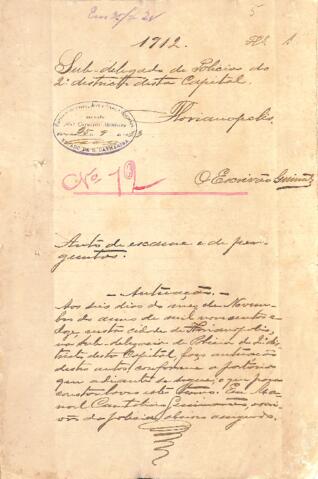 5
1912. Fl. 1
Sub-delegado de Policia do
2º districto desta Capital.
Florianopolis,
Nº 12
O Escrivão
Auto de exame e de per-
guntas.
- Autuação. -
Aos seis dias do mez de Novem-
bro do anno de mil novecentos e
doze, nesta cidade de Florianopolis,
na sub-delegacia de Policia do 2º dis-
tricto desta Capital, faço autuação
destes autos, conforme a portaria
que adiante se segue, o que para
constar lavro este termo. Eu Ma-
noel Guimarães, escri-
vão da policia o escrevi e assigno.